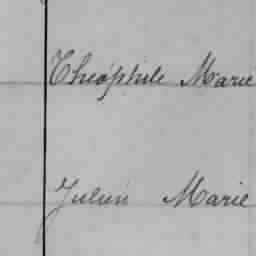 Théophile Marie
Julien Marie